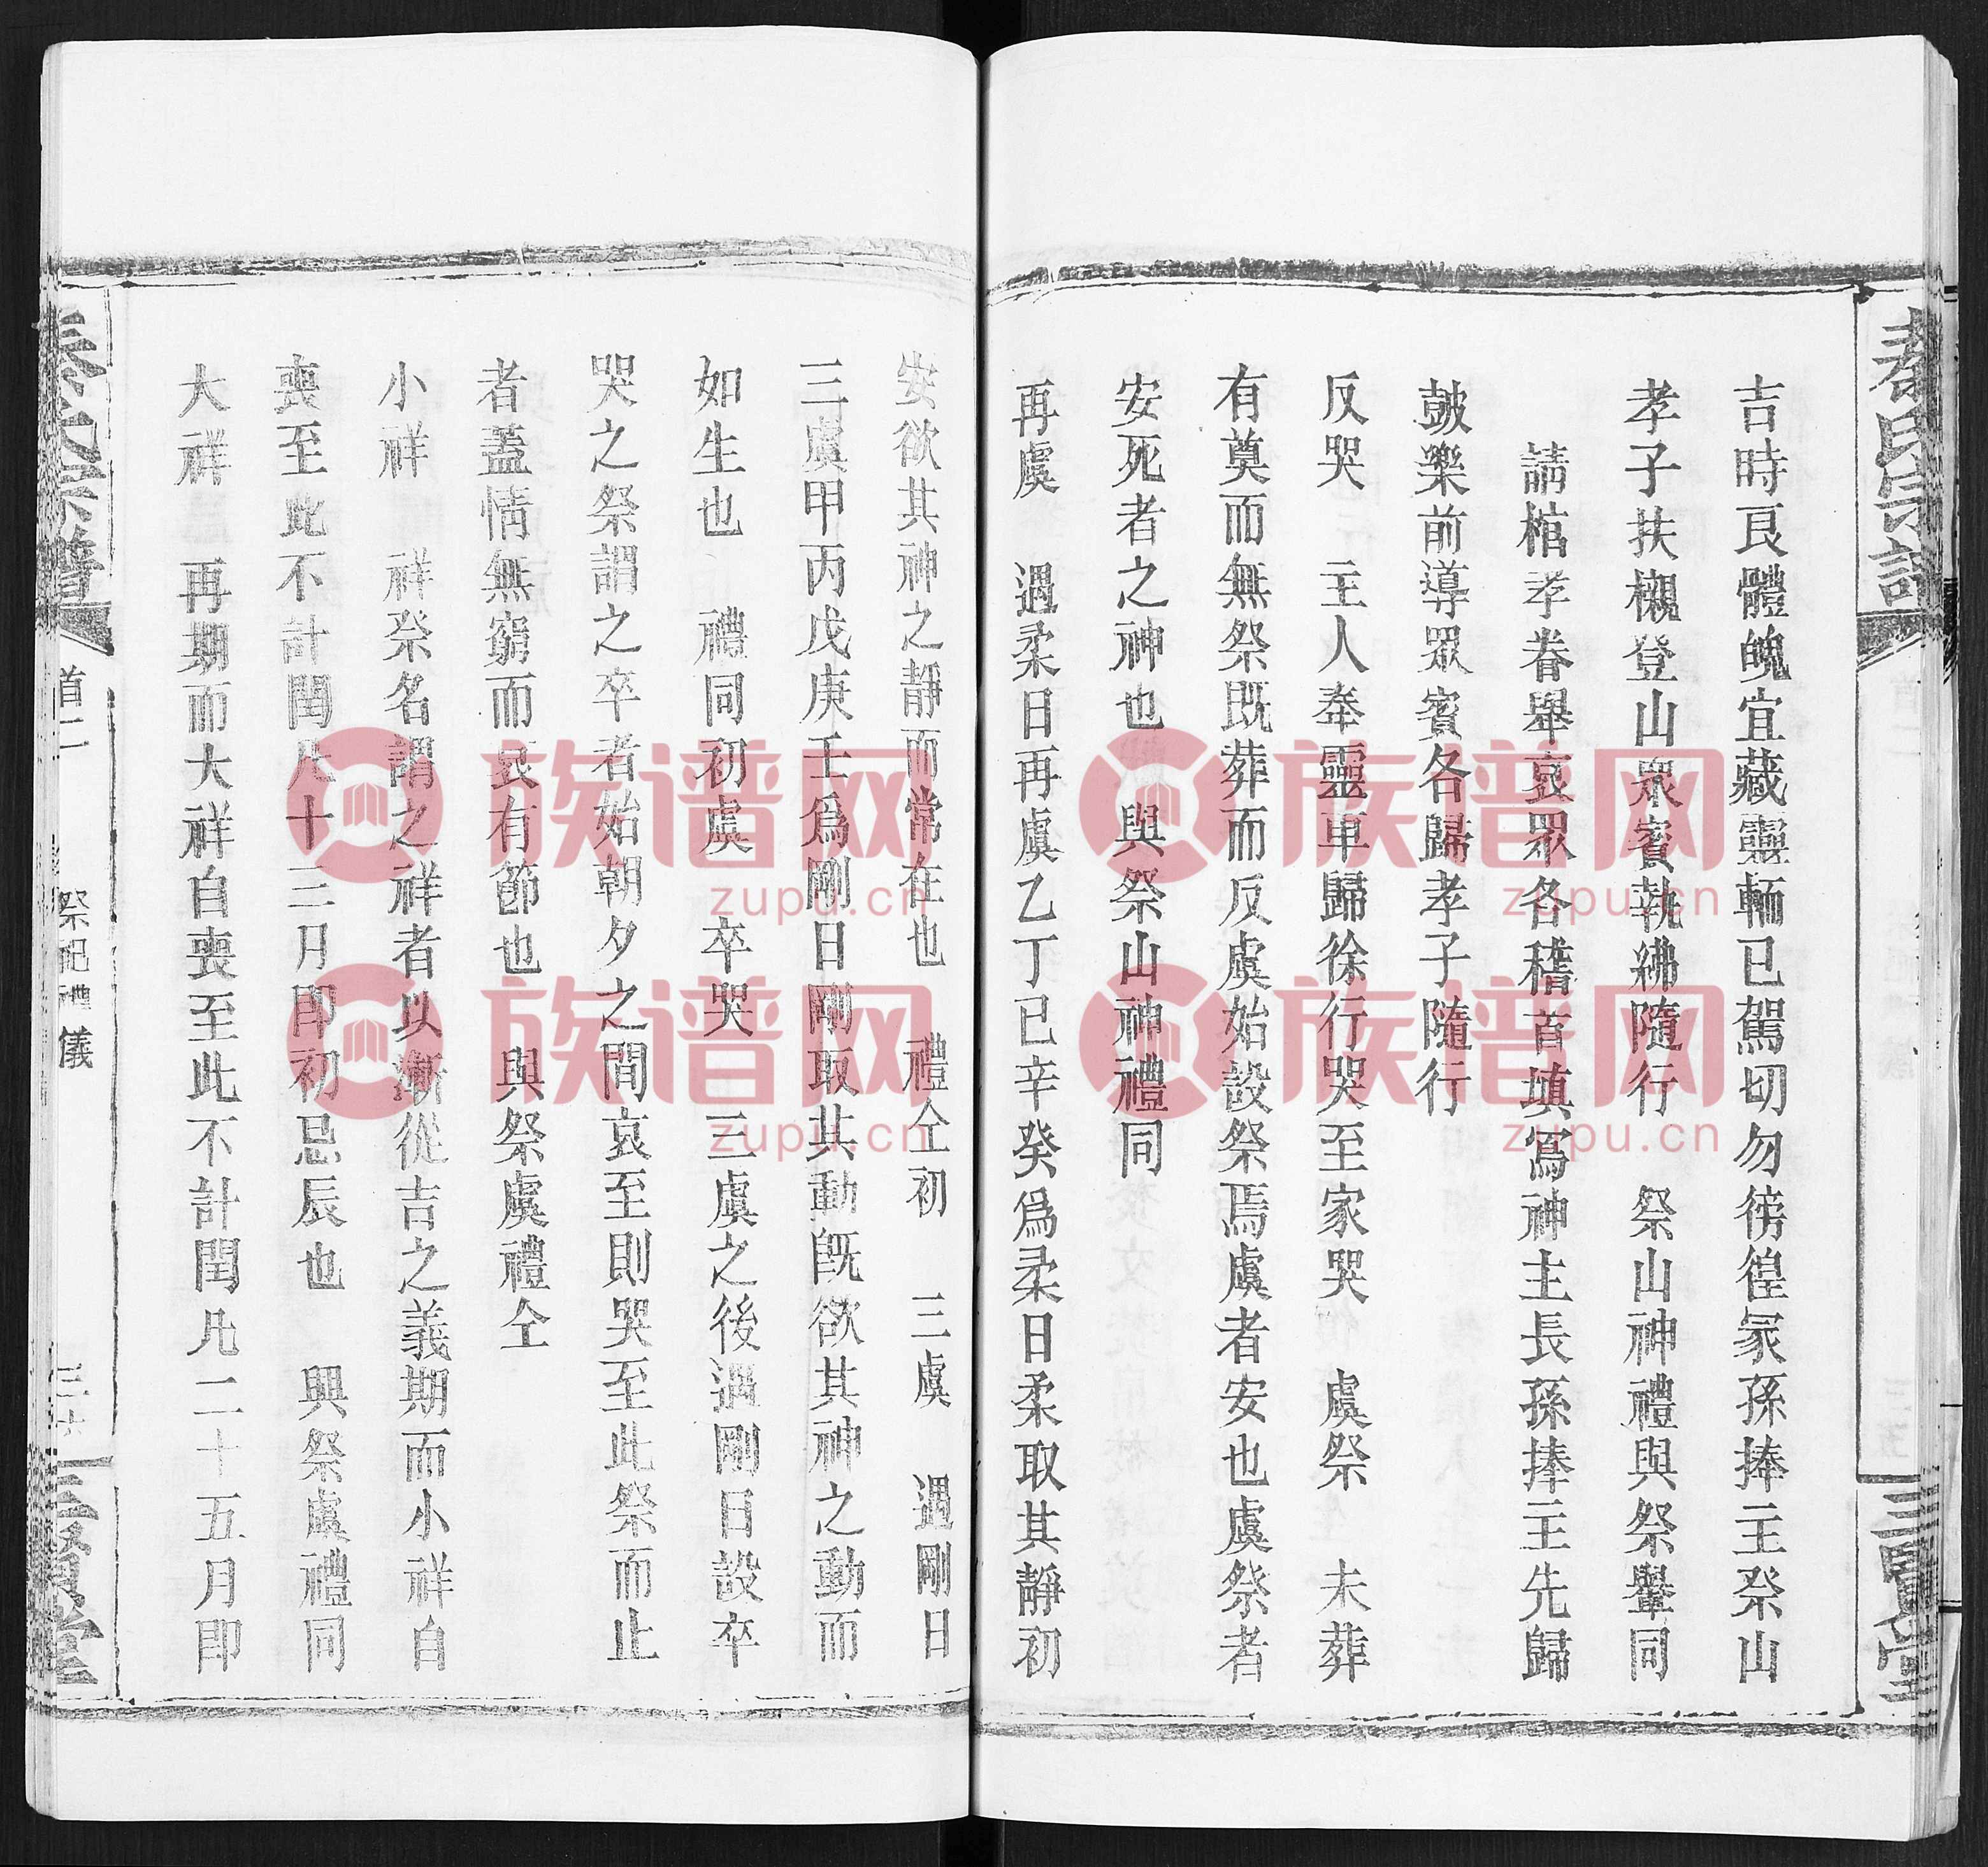 秦氏宗譜
三賢堂
吉時良體魄宜藏靈輀已駕切勿徬徨冢孫捧主祭山
孝子扶櫬登山眾賓執紼隨行　祭山神禮與祭轝同
請棺孝眷舉哀眾各稽首填寫神主長孫捧主先歸
鼓樂前導眾賓各歸孝子隨行
反哭　主人奉靈車歸徐行哭至家哭　虞祭　未葬
有奠而無祭既葬而反虞始設祭焉虞者安也虞祭者
安死者之神也　與祭山神禮同
再虞　遇柔日再虞乙丁巳辛癸爲柔日柔取其靜初
安欲其神之靜而常在也　禮仝初　三虞　遇剛日
三虞甲丙戊庚壬爲剛日剛取其動旣欲其神之動而
如生也　禮同初虞　卒哭　三虞之後遇剛日設卒
哭之祭謂之卒者始朝夕之間哀至則哭至此祭而止
者蓋情無窮而哀有節也　與祭虞禮仝
小祥　祥祭名謂之祥者以漸從吉之義期而小祥自
喪至此不計閏凡十三月即初忌辰也　與祭虞禮同
大祥　再期而大祥自喪至此不計閏凡二十五月即
秦氏宗譜
首二
祭祀禮儀
三十六
三賢堂
族谱网
zupu.cn
族谱网
zupu.cn
族谱网
zupu.cn
族谱网
zupu.cn